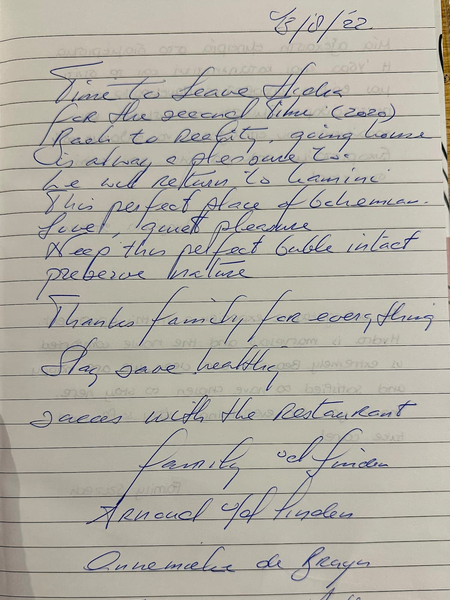 13/8/'22
Time to Leave Hydra
for the second Time (2020)
Back to Reality, going house
is alway a pleasure too
we will return to Kamini
This perfect place of bohemian
Live, quiet pleasure
Keep this perfect buble intact
preserve nature
Thanks family for everything
Stay save healthy
succes with the Restaurant
family v/d Linden
Arnoud v/d Linden
Annemieke de Bruyn